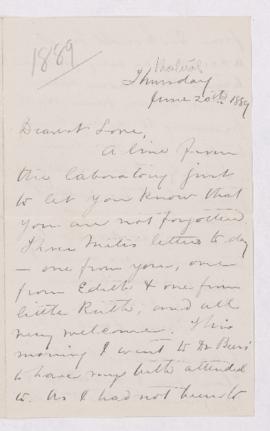 1889
Thursday
June 20th 1889
Dearest Love,
A line from
the laboratory just
to let you know that
you are not forgotten
Three letters to day
— one from you, one
from Edith & one from
little Ruth, and all
very welcome. This
morning I went to Dr
to have my teeth attended
to. As I had not been to